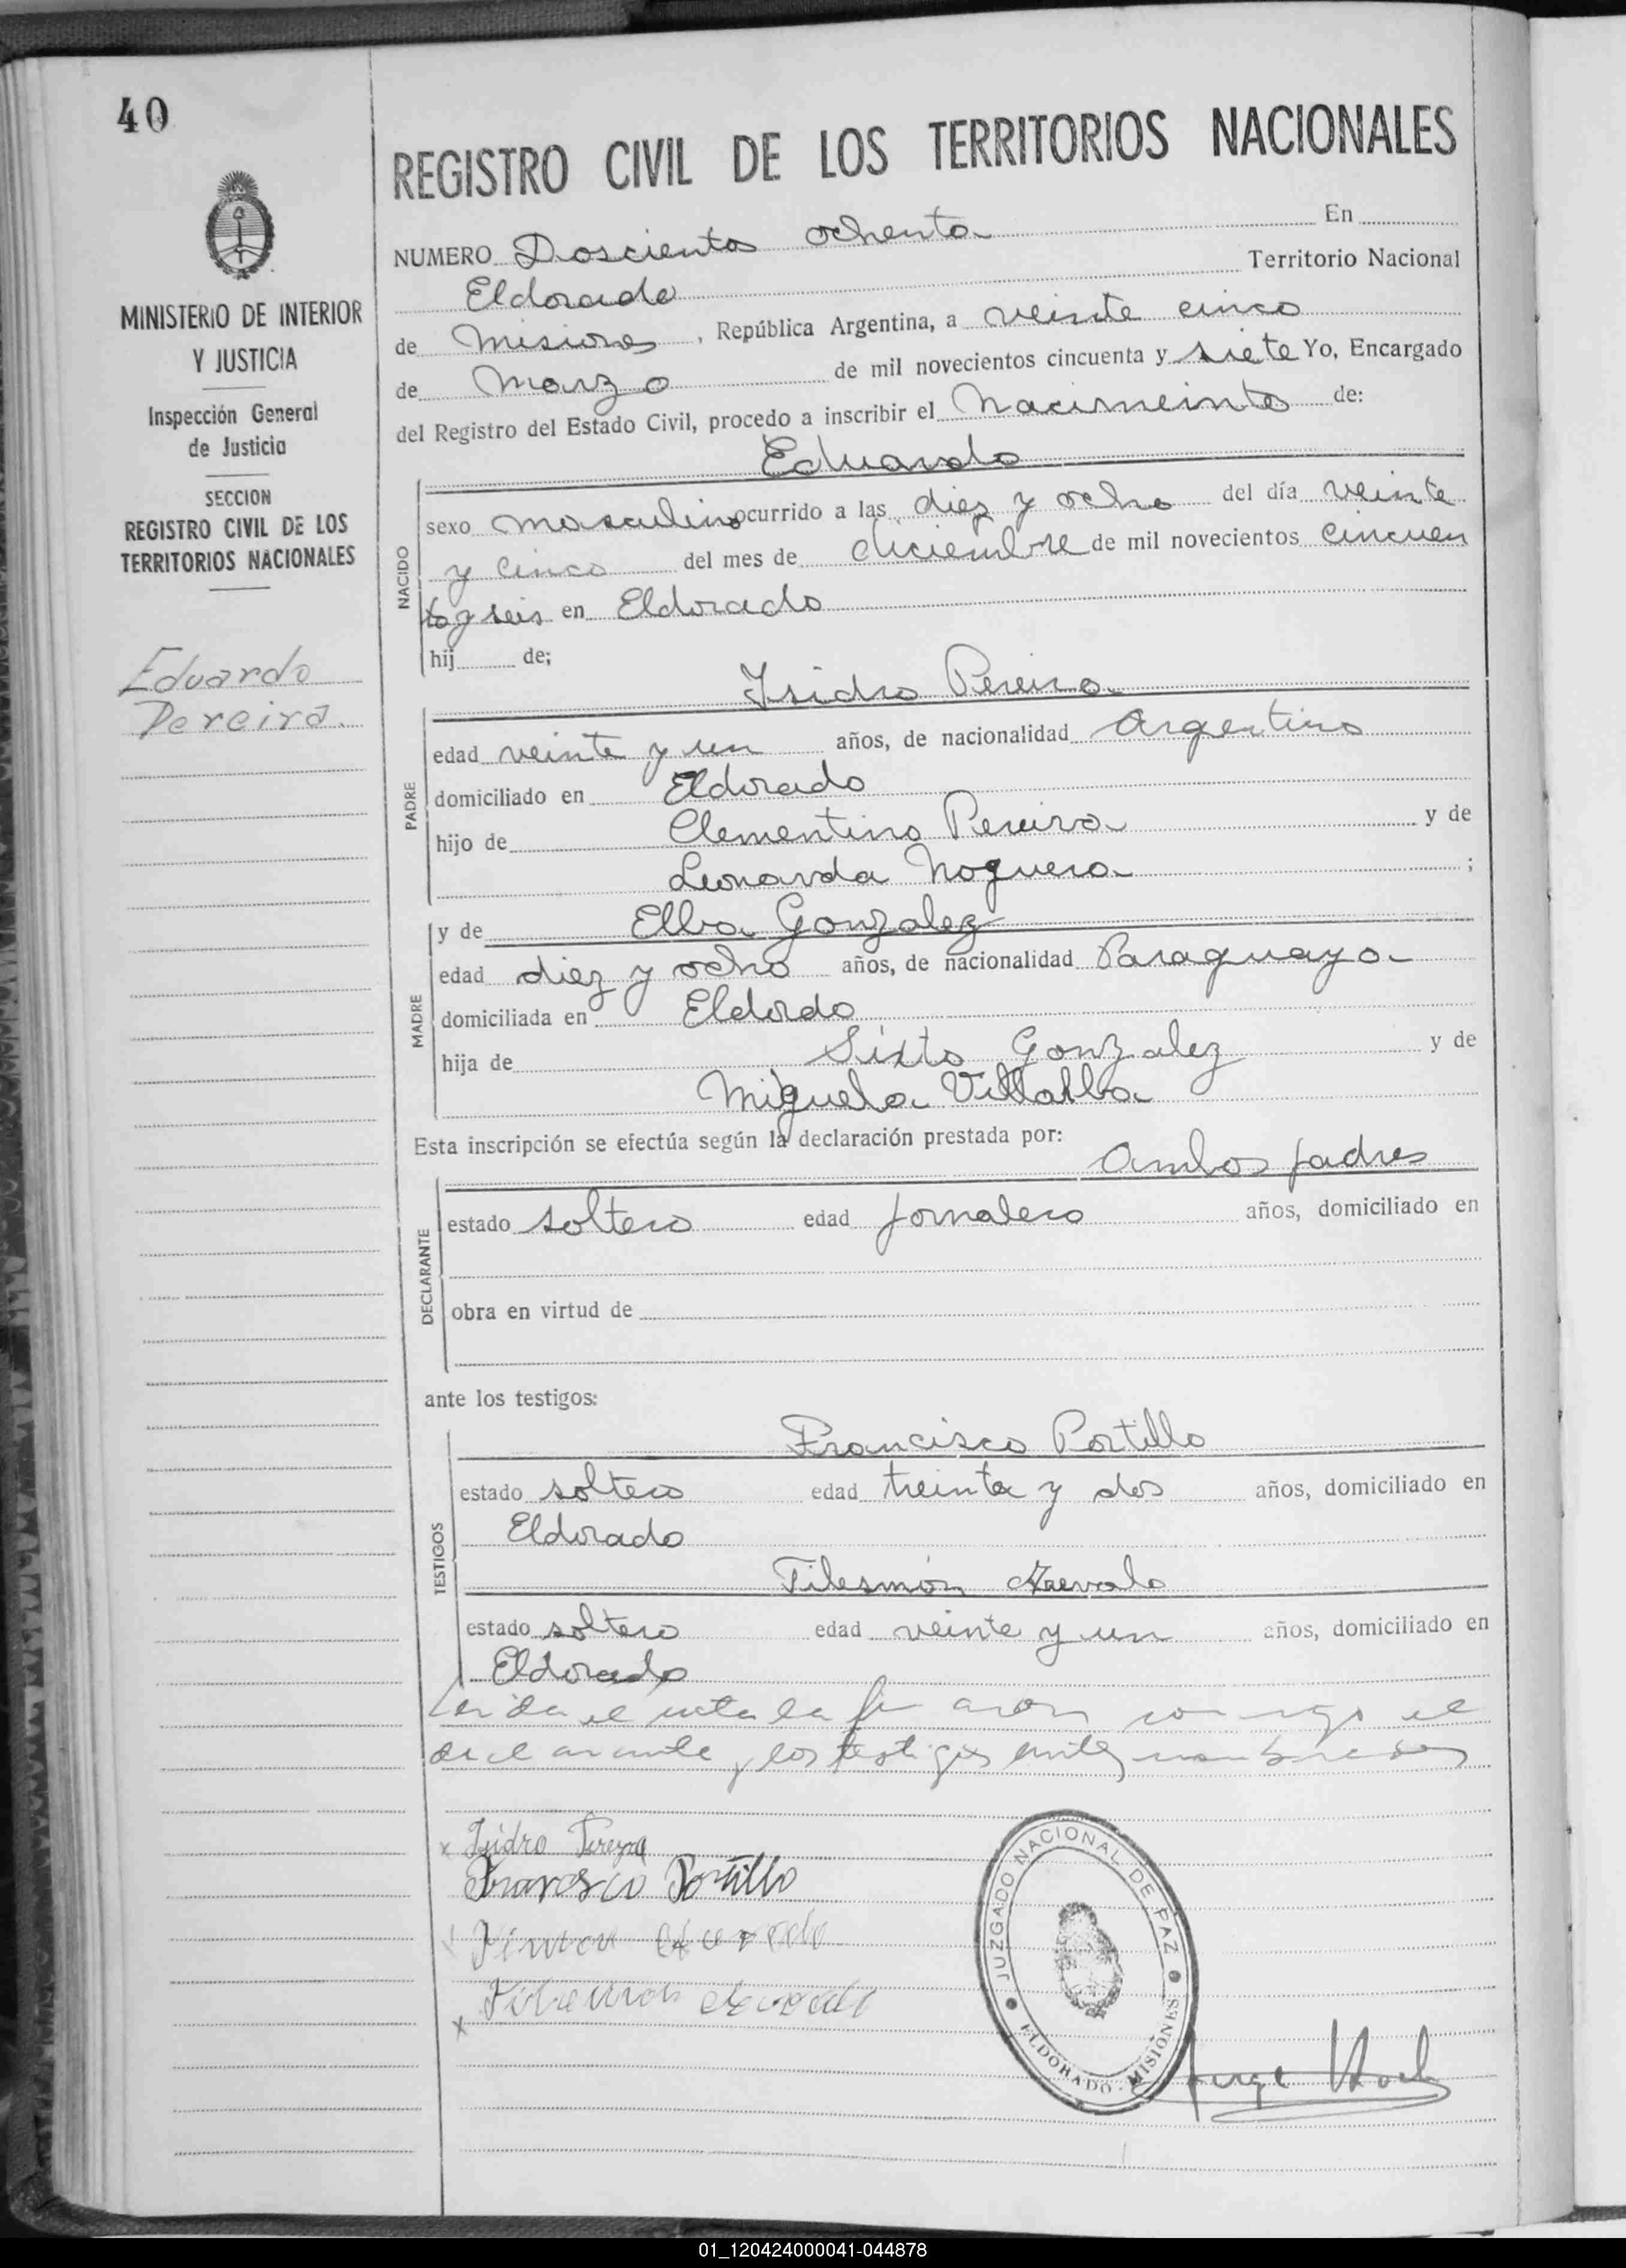 40
MINISTERIO DE INTERIOR
Y JUSTICIA
Inspección General
de Justicia
SECCION
REGISTRO CIVIL DE LOS
TERRITORIOS NACIONALES
Eduardo
Pereira.
REGISTRO CIVIL DE LOS TERRITORIOS NACIONALES
NUMERO Doscientos ochenta En
Eldorado Territorio Nacional
de Misiones, República Argentina, a veinte cinco
de Marzo de mil novecientos cincuenta y siete Yo, Encargado
del Registro del Estado Civil, procedo a inscribir el Nacimeinto de:
Eduardo
NACIDO
sexo masculino ocurrido a las diez y ocho del día veinte
y cinco del mes de diciembre de mil novecientos cincuen
ta y seis en Eldorado
hij de;
Isidro Pereira
PADRE
edad veinte y un años, de nacionalidad Argentino
domiciliado en Eldorado
hijo de Clementino Pereira y de
Leonarda Noguera ;
MADRE
y de Elba Gonzalez
edad diez y ocho años, de nacionalidad Paraguaya
domiciliada en Eldordo
hija de Sixto Gonzalez y de
Miguela Villalba
Esta inscripción se efectúa según la declaración prestada por:
Ambos padres
DECLARANTE
estado soltero edad Jornalero años, domiciliado en
obra en virtud de
ante los testigos:
Francisco Portillo
TESTIGOS
estado soltero edad treinta y dos años, domiciliado en
Eldorado
Filesmón Arevalo
estado soltero edad veinte y un años, domiciliado en
Eldorado
Leida el acta la firmaron conmigo el
declarante y los testigos antes nombrados
x Isidro Pereyra
Portillo
x
JUZGADO NACIONAL DE PAZ
ELDORADO - MISIONES
Jorge
01_120424000041-044878